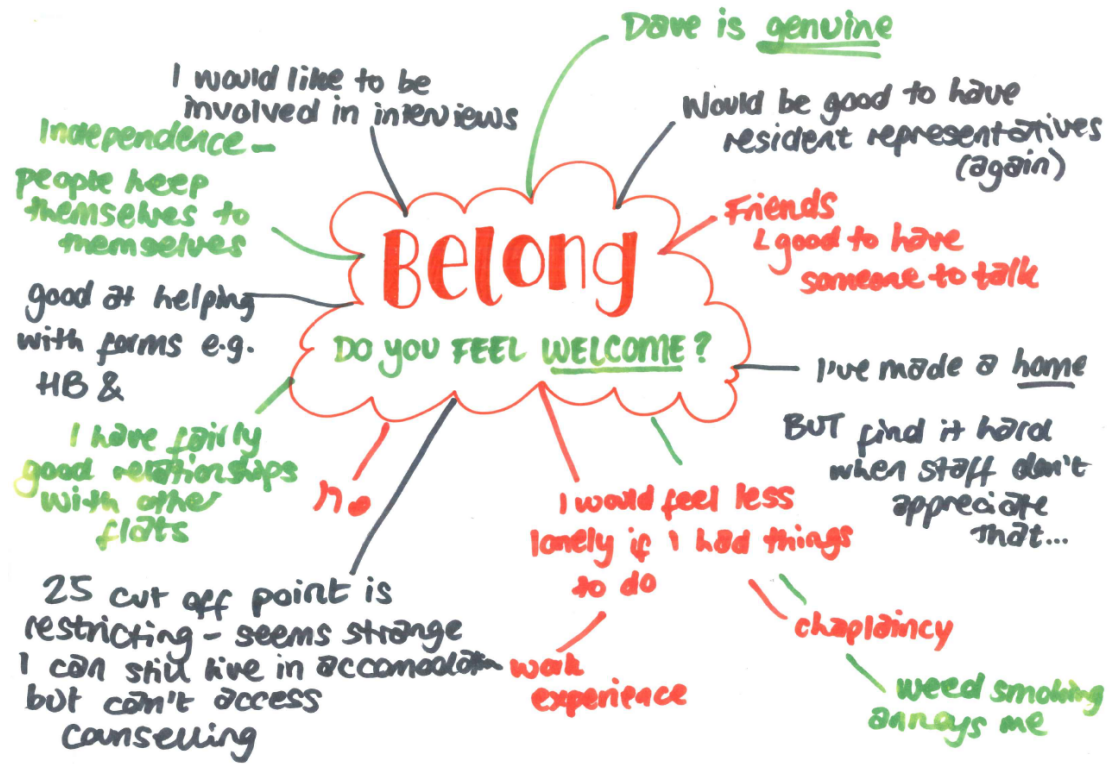 Dave is genuine
I would like to be
involved in interviews
Would be good to have
resident representatives
(again)
Independence –
people keep
themselves to
themselves
Friends
& good to have
someone to talk
Belong
DO YOU FEEL WELCOME?
good at helping
with forms e.g.
HB &
I've made a home
BUT find it hard
when staff don't
appreciate
that...
I have fairly
good relationships
with other
flats
no
I would feel less
lonely if I had things
to do
25 cut off point is
restricting – seems strange
I can still live in accomodation
but can't access
counselling
work
experience
chaplaincy
weed smoking
annoys me